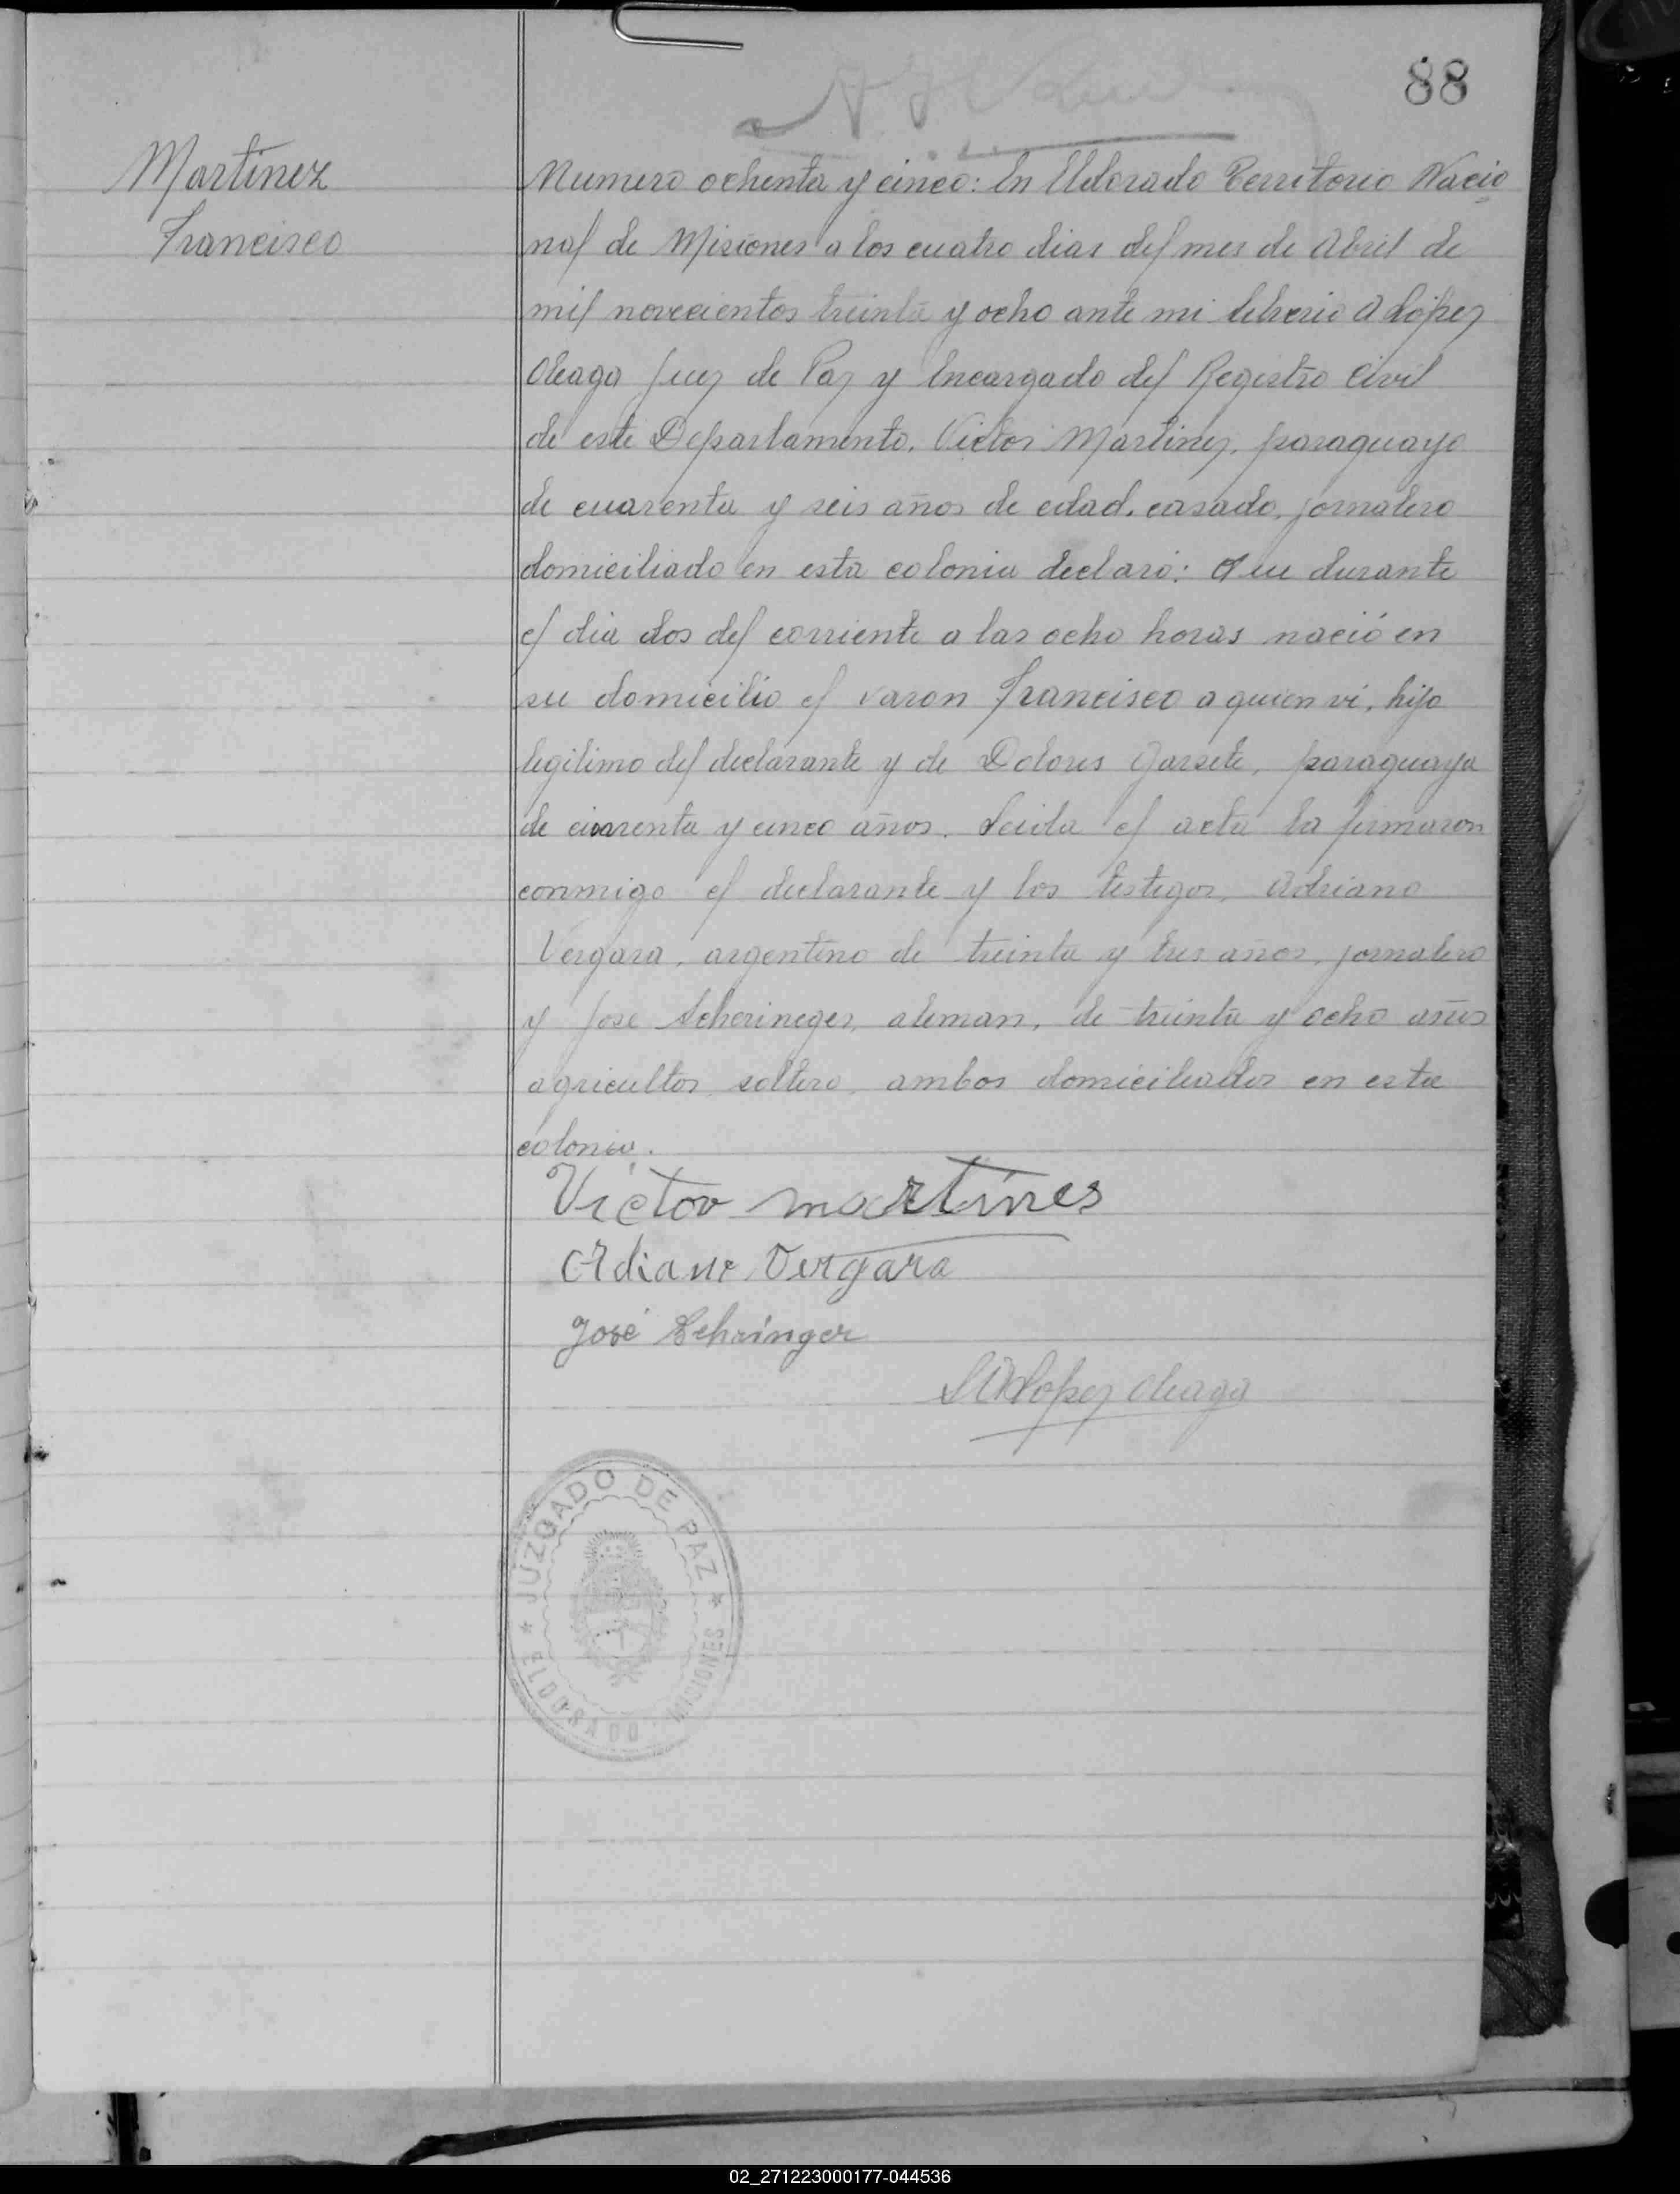 88
Martinez
Francisco
Numero ochenta y cinco: En Eldorado Territorio Nacio
nal de Misiones a los cuatro dias del mes de Abril de
mil novecientos treinta y ocho ante mi A López
Oleaga Juez de Paz y Encargado del Registro Civil
de este Departamento. Victor Martinez, paraguayo
de cuarenta y seis años de edad, casado, jornalero
domiciliado en esta colonia declaró: Que durante
el dia dos del corriente a las ocho horas nació en
su domicilio el varon Francisco a quien vi, hijo
legitimo del declarante y de Dolores Garsete, paraguaya
de cuarenta y cinco años. Leida el acta la firmaron
conmigo el declarante y los testigos, Adriano
Vergara, argentino de treinta y tres años, jornalero
y Jose Scherineger, aleman, de treinta y ocho años
agricultor, soltero, ambos domiciliados en esta
colonia.
Victor martines
Adiano Vergara
José Schringer
L A Lopez Oleaga
JUZGADO DE PAZ
ELDORADO MISIONES
02_271223000177-044536